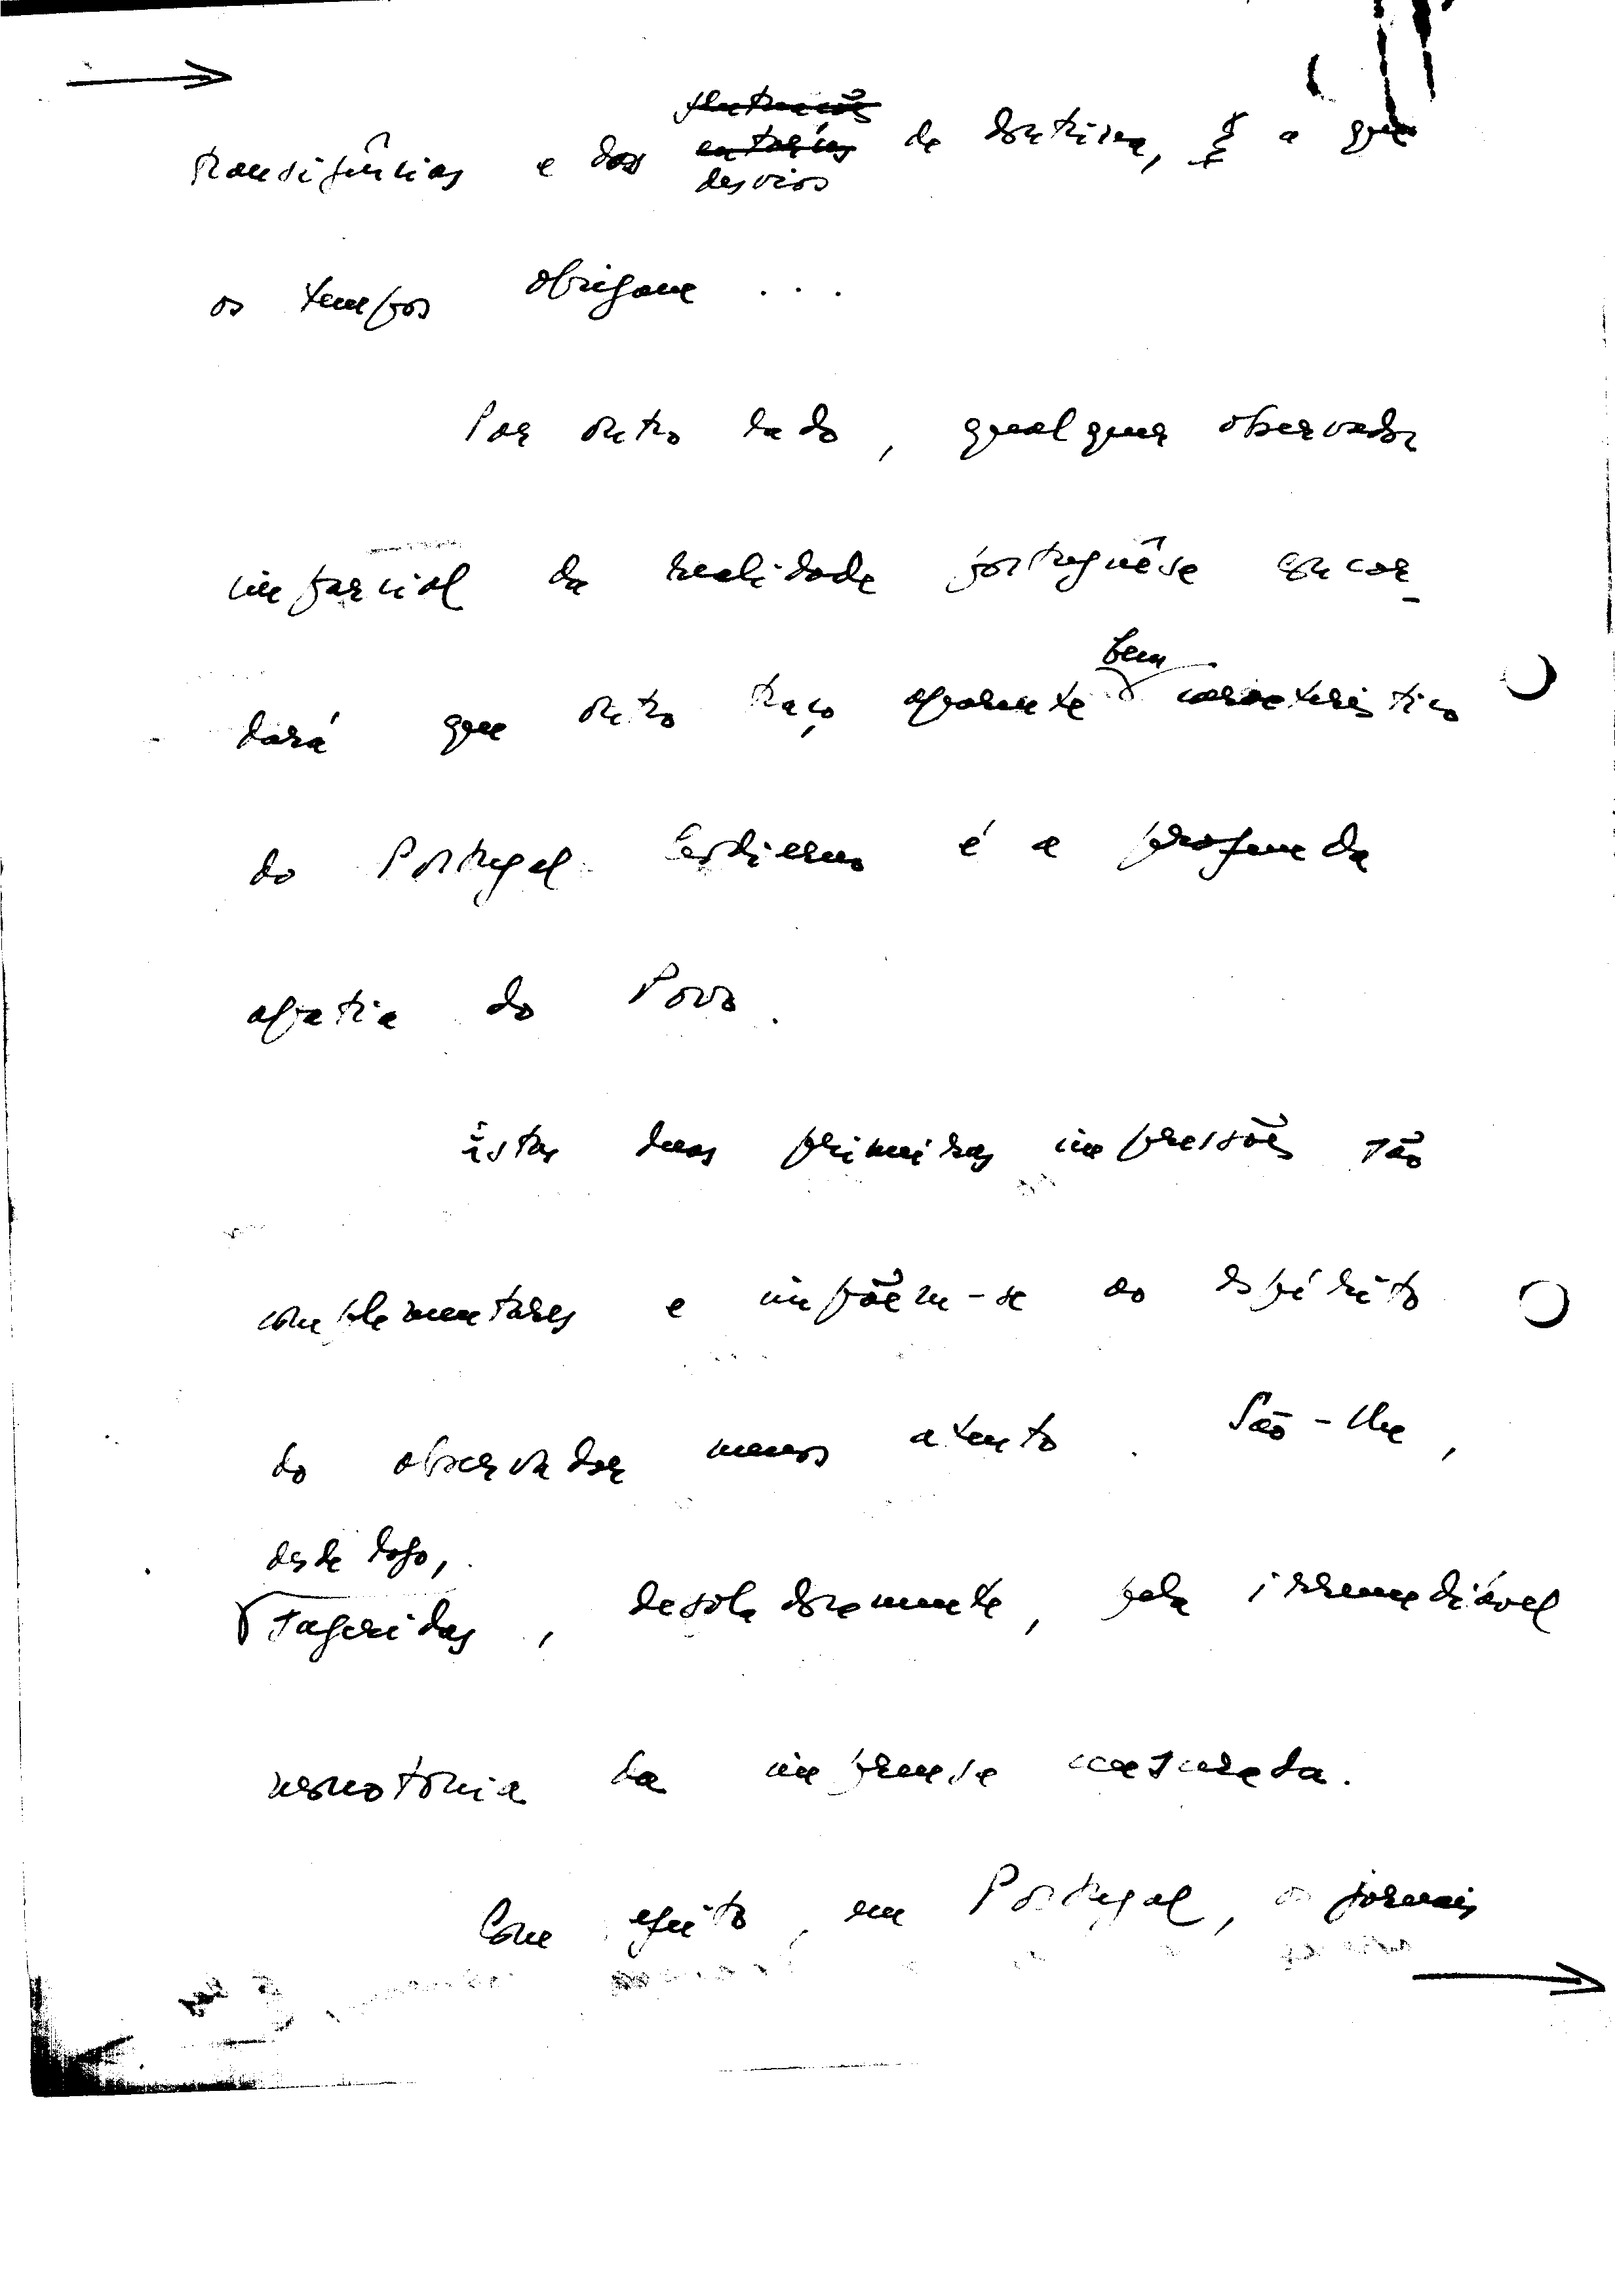 transigências e dos desvios de doutrina, a que
os tempos obrigam ...
Por outro lado, qualquer observador
imparcial da realidade portuguêsa concor-
dará que outro traço aparente bem característico
do Portugal hodierno é a profunda
apatia do Povo.
Estas duas primeiras impressões são
complementares e impõem-se ao espírito
do observador menos atento. São-lhe,
desde logo,
sugeridas, desoladoramente, pela irremediável
monotonia da imprensa censurada.
Com efeito, em Portugal, os jornais